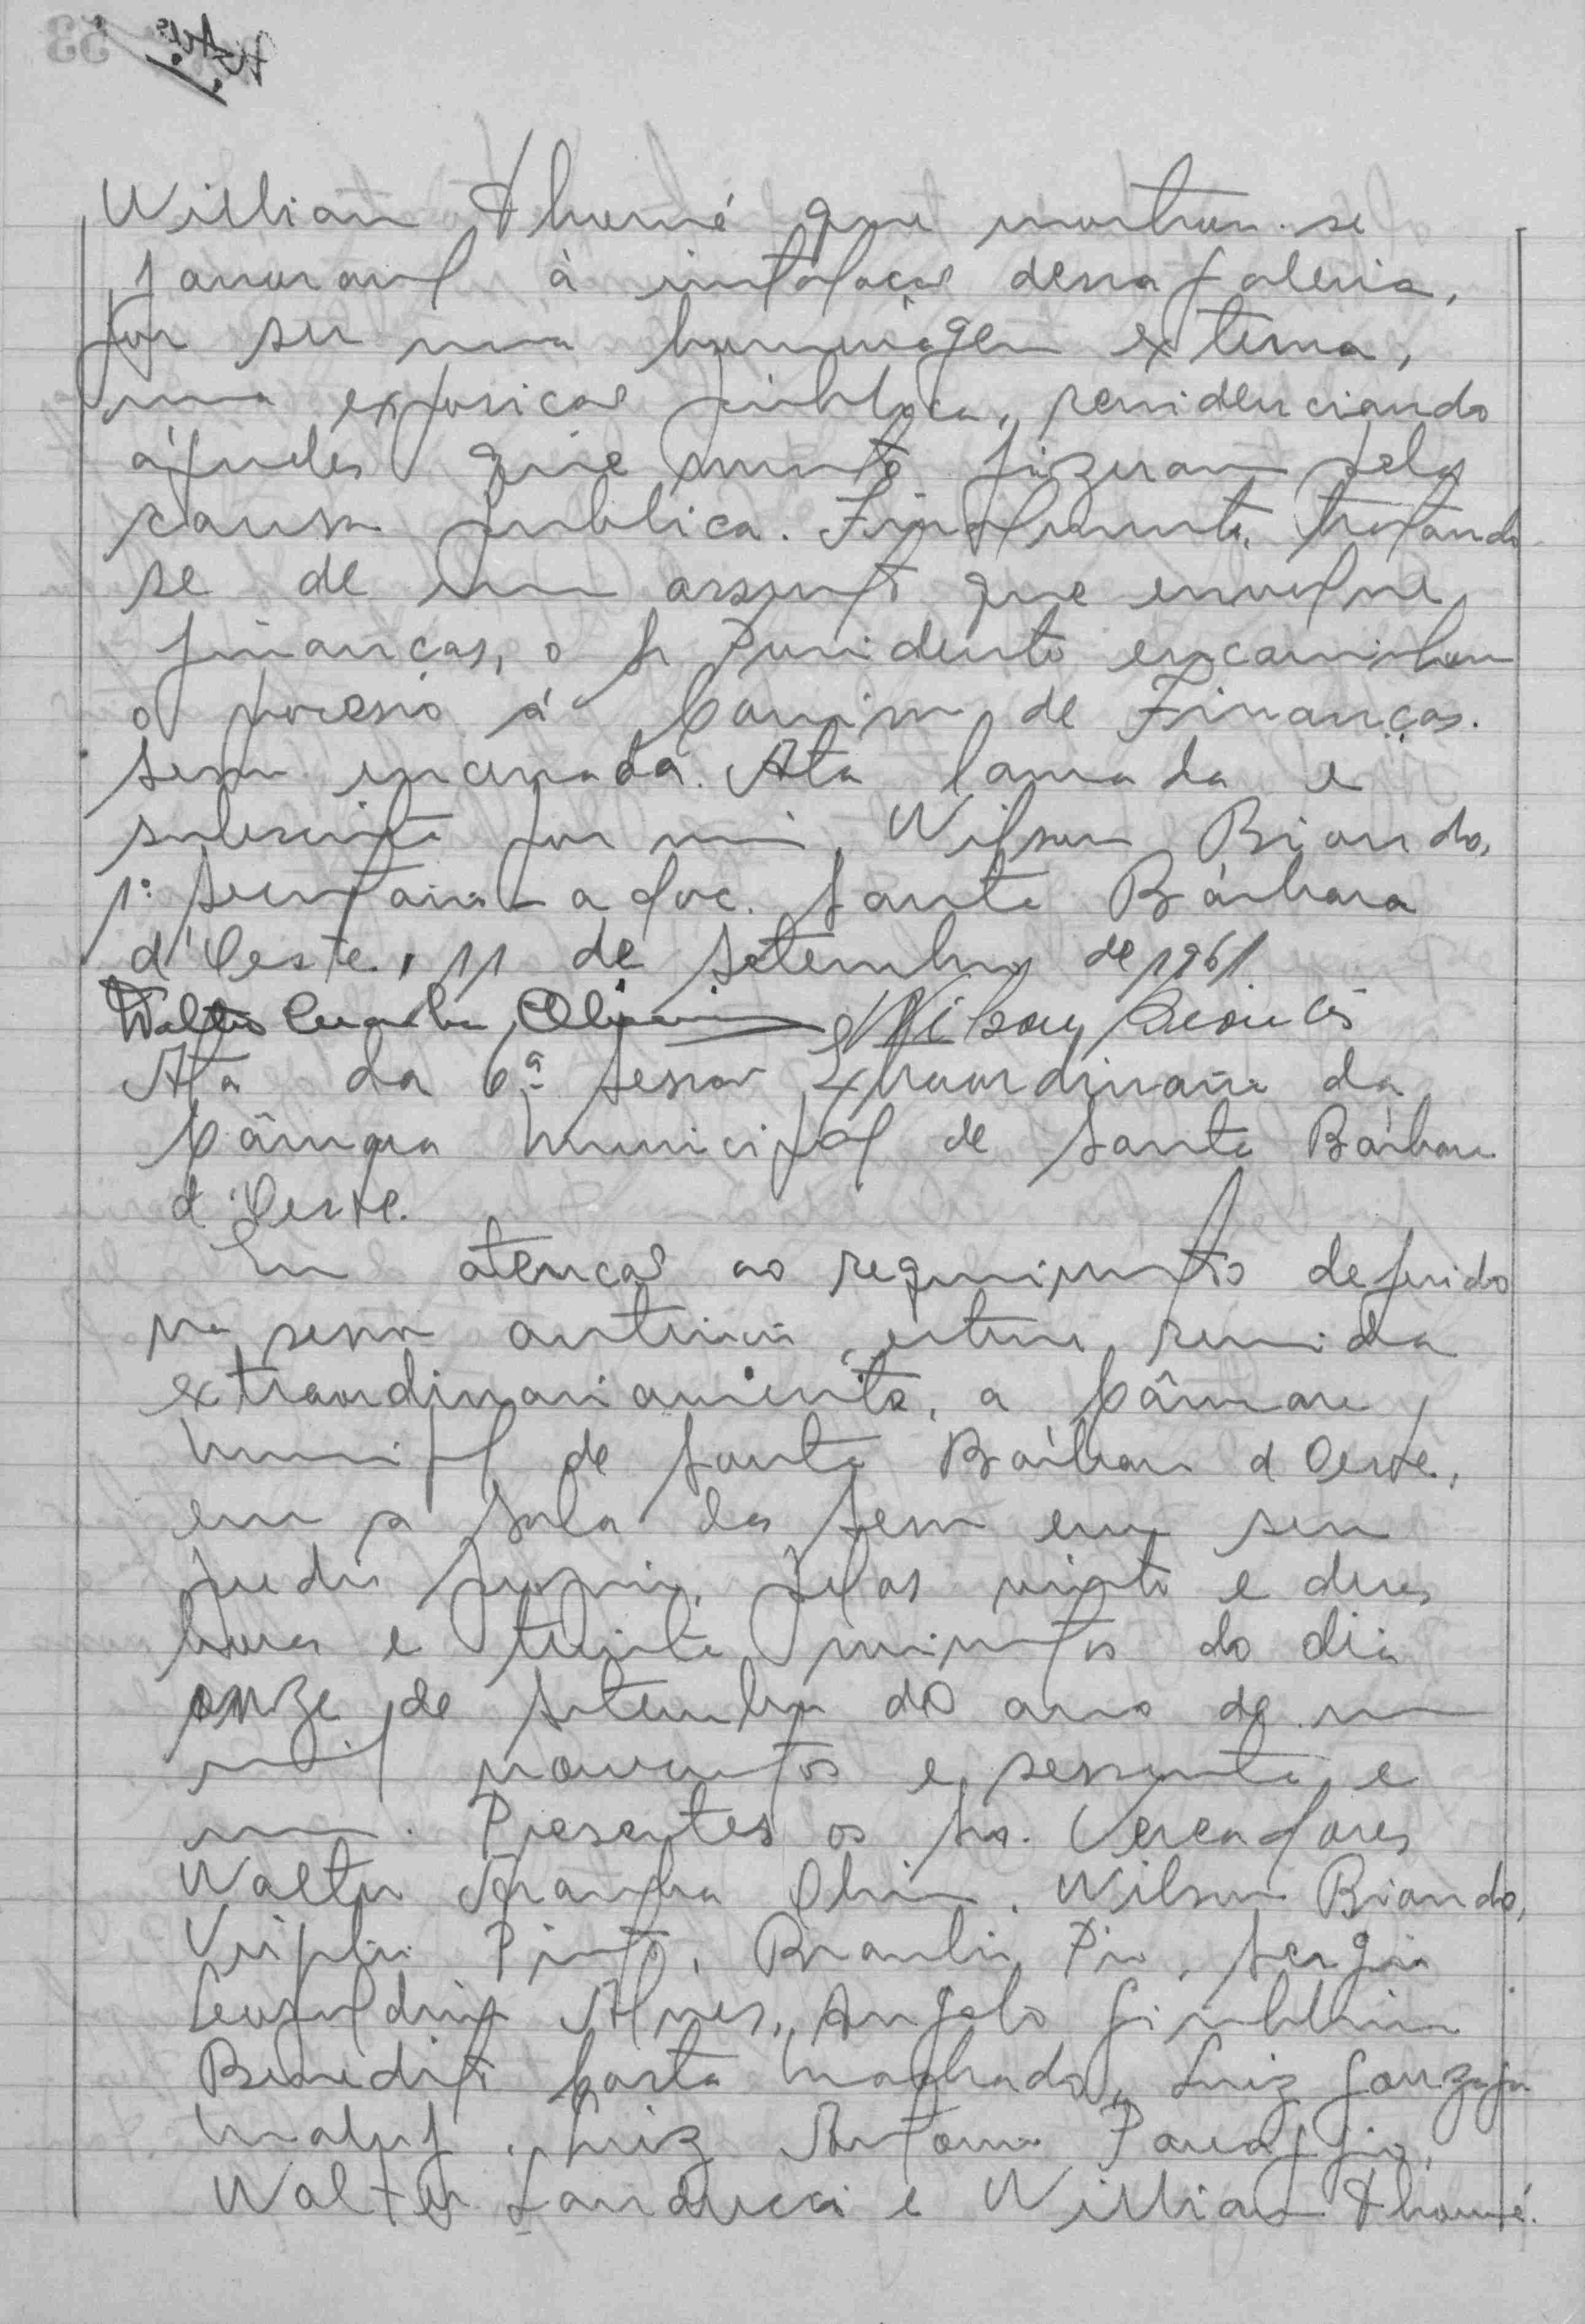 Willian Thomé que mostrou-se
favoravel à instalação dessa galeria,
por ser uma homenagem externa,
uma exposição pública, reverenciando
àqueles que muito fizeram pela
causa publica. Finalmente, tratando
se de um assunto que envolve
finanças, o Sr Presidente encaminhou
o processo à Comissão de Finanças.
Sessão encerrada. Ata lavrada e
subscrita por mim, Wilson Biondo,
1º Secretario - adoc. Santa Bárbara
d'Oeste, 11 de Setembro de 1961
Ata da 6ª Sessão Extraordinária da
Câmara Municipal de Santa Bárbara
d'Oeste.
Em atenção ao requerimento deferido
na sessão anterior, esteve reunida
extraordinariamente, a Câmara
Municipal de Santa Bárbara d'Oeste,
em a Sala das Sessões em seu
predio proprio, pelas vinte e duas
horas e trinta minutos do dia
onze de Setembro do ano de um
mil novecentos e sessenta e
um. Presentes os Srs. Vereadores
Walter Aranha Wilson Biondo,
Virgilio Pinto, Braulio Pio, Sergio
Leopoldino Alves, Angelo Giubbina
Benedito Costa Machado, Luiz Gonzaga
Maluf, Luiz Antonio Panaggio,
Walter Landucci e Willian Thomé.